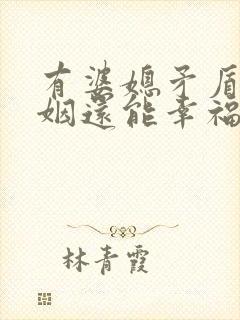 有婆媳矛盾
姻還能幸福
林青霞